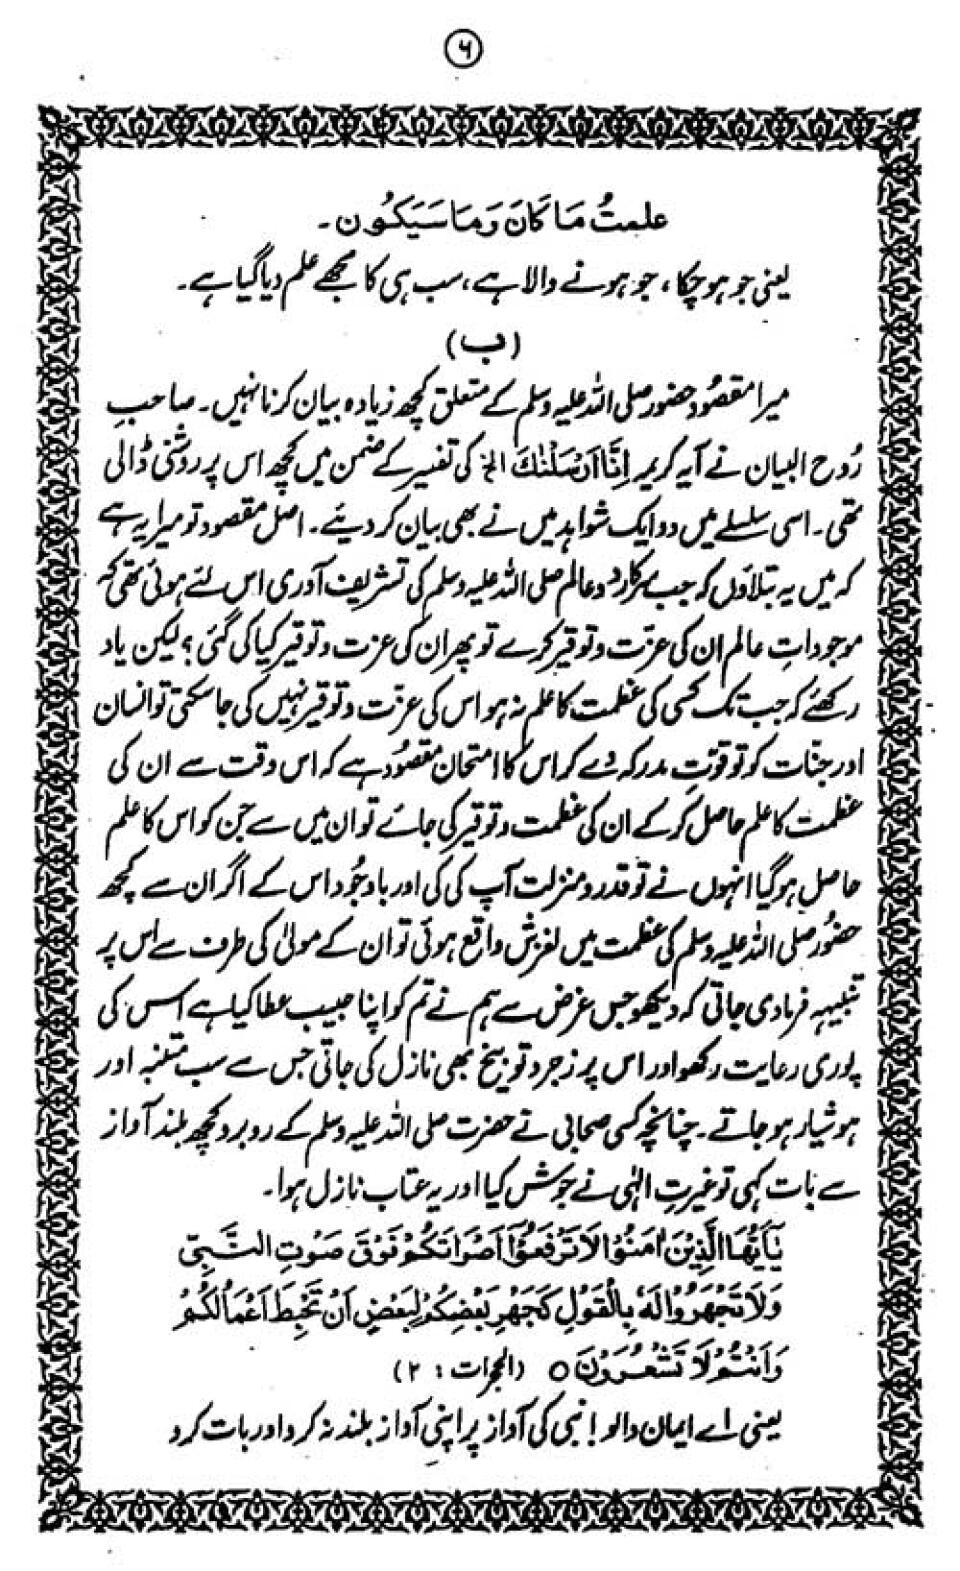 ۶
علمتُ مَا كَانَ وَمَا سَيَكُون۔
یعنی جو ہو چکا، جو ہونے والا ہے، سب ہی کا مجھے علم دیا گیا ہے۔
(ب)
میرا مقصود حضور صلی اللہ علیہ وسلم کے متعلق کچھ زیادہ بیان کرنا نہیں۔ صاحبِ
رُوح البیان نے آیہ کریمہ اِنَّا اَرْسَلْنٰكَ الخ کی تفسیر کے ضمن میں کچھ اس پر روشنی ڈالی
تھی۔ اسی سلسلے میں دو ایک شواہد میں نے بھی بیان کر دیئے۔ اصل مقصود تو میرا یہ ہے
کہ میں یہ بتلاؤں کہ جب سرکارِ دو عالم صلی اللہ علیہ وسلم کی تشریف آوری اس لئے ہوئی تھی کہ
موجوداتِ عالم ان کی عزت و توقیر کرے تو پھر ان کی عزت و توقیر کیا کی گئی؟ لیکن یاد
رکھئے کہ جب تک کسی کی عظمت کا علم نہ ہو اس کی عزّت و توقیر نہیں کی جا سکتی تو انسان
اور جنّات کو تو قوتِ مدرکہ دے کر اس کا امتحان مقصُود ہے کہ اس وقت سے ان کی
عظمت کا علم حاصل کر کے ان کی عظمت و توقیر کی جائے تو ان میں سے جن کو اس کا علم
حاصل ہو گیا انہوں نے تو قدر و منزلت آپ کی کی اور باوجُود اس کے اگر ان سے کچھ
حضُور صلی اللہ علیہ وسلم کی عظمت میں لغزش واقع ہوئی تو ان کے مولیٰ کی طرف سے اس پر
تنبیہہ فرما دی جاتی کہ دیکھو جس غرض سے ہم نے تم کو اپنا حبیب عطا کیا ہے اس کی
پوری رعایت رکھو اور اس پر زجر و توبیخ بھی نازل کی جاتی جس سے سب متنبہ اور
ہوشیار ہو جاتے۔ چنانچہ کسی صحابی نے حضرت صلی اللہ علیہ وسلم کے روبرو کچھ بلند آواز
سے بات کہی تو غیرتِ الہٰی نے جوش کیا اور یہ عتاب نازل ہوا۔
يٰٓاَيُّهَا الَّذِيْنَ اٰمَنُوْا لَا تَرْفَعُوْٓا اَصْوَاتَكُمْ فَوْقَ صَوْتِ النَّبِيِّ
وَلَا تَجْهَرُوْا لَهٗ بِالْقَوْلِ كَجَهْرِ بَعْضِكُمْ لِبَعْضٍ اَنْ تَحْبَطَ اَعْمَالُكُمْ
وَاَنْتُمْ لَا تَشْعُرُوْنَ ○ (الحجرات : ۲)
یعنی اے ایمان والو! نبی کی آواز پر اپنی آواز بلند نہ کرو اور بات کرو